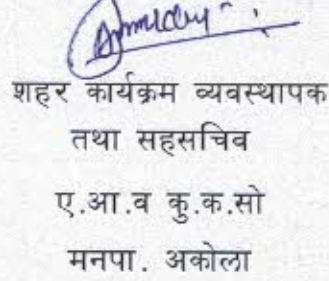 शहर कार्यक्रम व्यवस्थापक
तथा सहसचिव
ए.आ.व कु.क.सो
मनपा. अकोला